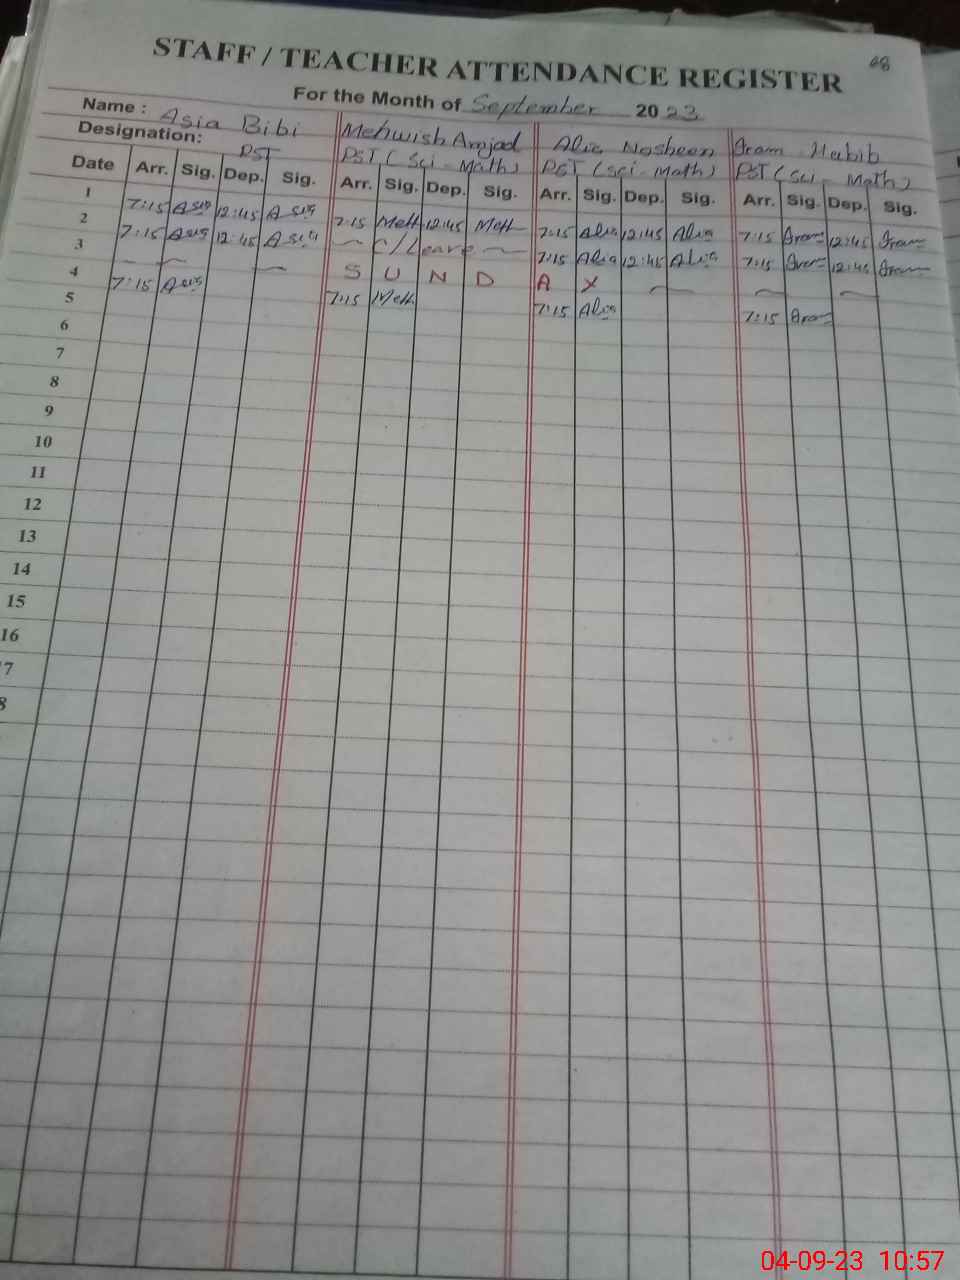 68
STAFF / TEACHER ATTENDANCE REGISTER
For the Month of September 2023
Name : Asia Bibi Mehwish Amjad Alia Nosheen Iram Habib
Designation: PST PST (Sci - Math) PST (Sci - Math) PST (Sci - Math)
Date Arr. Sig. Dep. Sig. Arr. Sig. Dep. Sig. Arr. Sig. Dep. Sig. Arr. Sig. Dep. Sig.
1 7:15 Asia 12:45 Asia 7:15 Meh 12:45 Meh 7:15 Alia 12:45 Alia 7:15 Iram 12:45 Iram
2 7:15 Asia 12:45 Asia ~ C/Leave ~ 7:15 Alia 12:45 Alia 7:15 Iram 12:45 Iram
3 ~ ~ ~ S U N D A Y ~ ~ ~
4 7:15 Asia 7:15 Meh 7:15 Alia 7:15 Iram
5
6
7
8
9
10
11
12
13
14
15
16
7
8
04-09-23 10:57